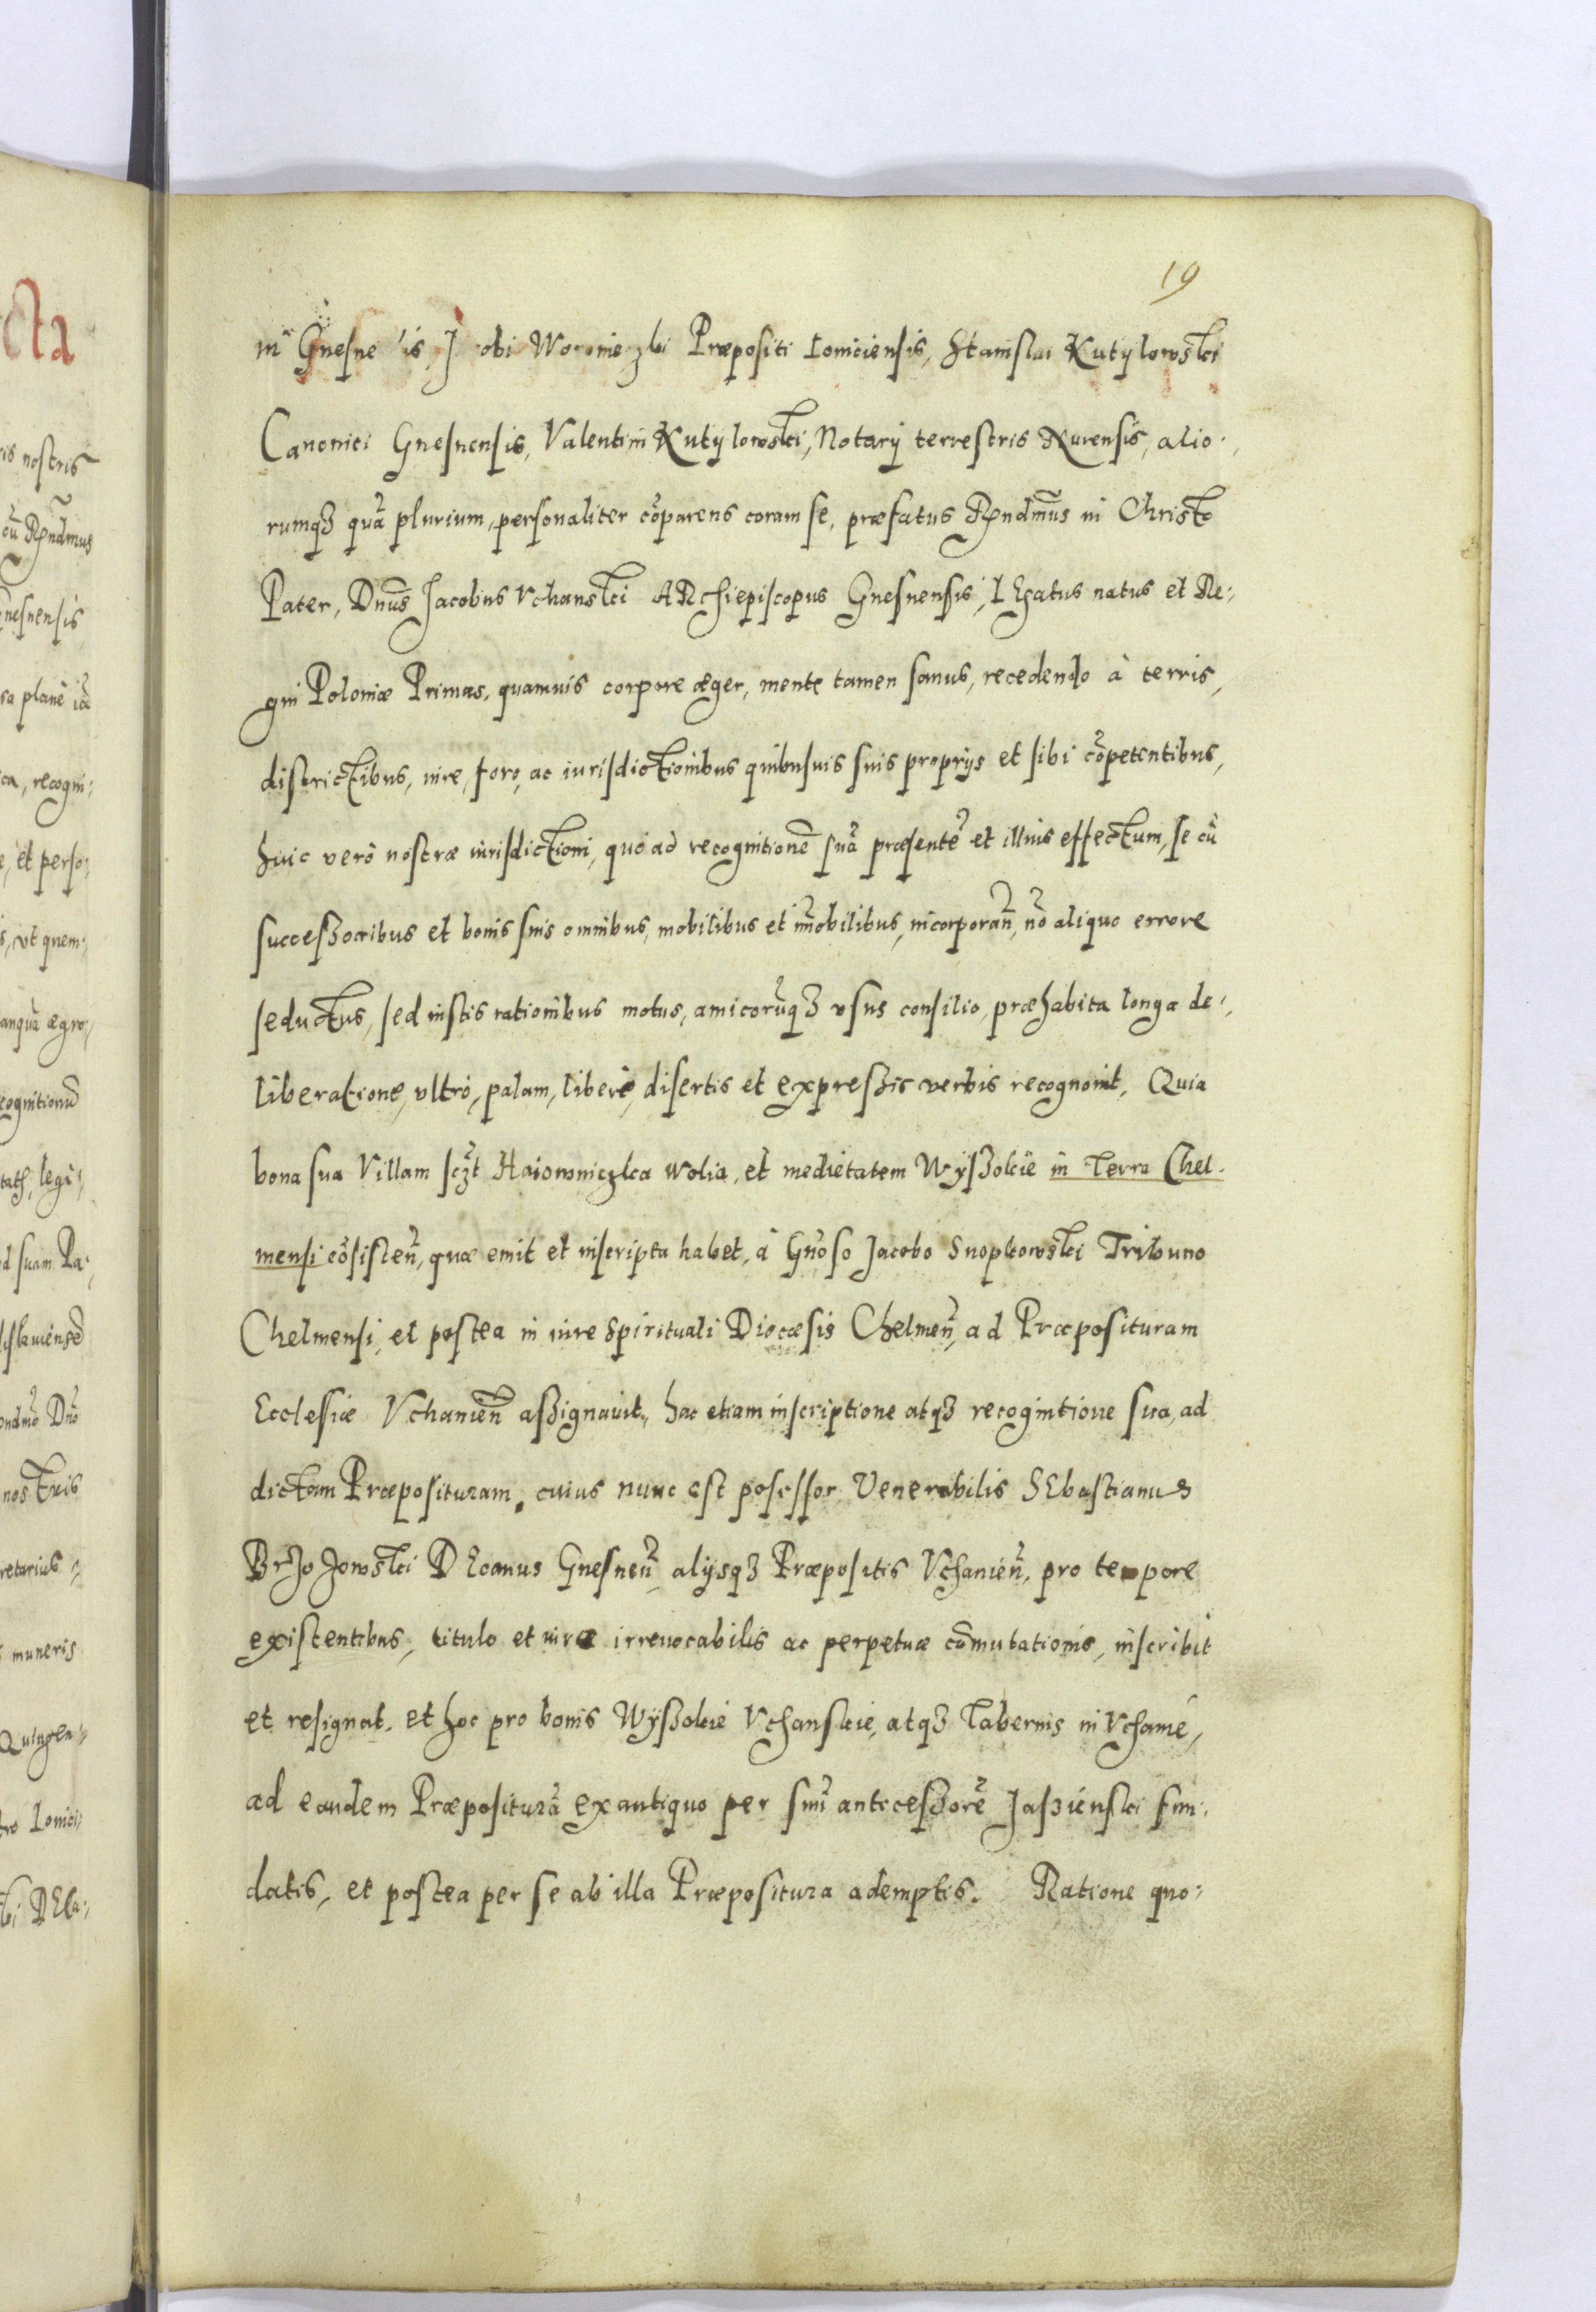 19
ni Gnesne is, J obi Woronieczki Præpositi Louiciensis, Stanislai Kutylowski
Canonici Gnesnensis, Valentini Kutylowski, Notarij terrestris Nurensis, alio:
rumqꝫ quã plurium, personaliter cõparens coram se, præfatus Rẽndmũs in Christo
Pater, Dnũs Jacobus Vchanski ARchiepiscopus Gnesnensis, LEgatus natus et Re:
gni Poloniæ Primas, quamuis corpore æger, mente tamen sanus, recedendo à terris,
districtibus, iure, foro, ac iurisdictionibus quibusuis suis proprijs et sibi cõpetentibus,
huic verò nostræ iurisdictioni, quò ad recognitionẽ suã præsentẽ et illius effectum, se cũ
successoribus et bonis suis omnibus, mobilibus et im̃obilibus, incorporañ, nõ aliquo errore
seductus, sed iustis rationibus motus, amicorũqꝫ vsus consilio, præhabita longa de:
liberatione, vltrò, palam, liberè, disertis et expressis verbis recognouit, Quia
bona sua Villam sczt̃ Haiowniczka wolia, et medietatem Wyssokie in Terra Chel:
mensi cõsisteñ, quæ emit et inscripta habet, à Gnõso Jacobo Snopkowski Tribuno
Chelmensi, et postea in iure Spirituali Diocæsis Chelmeñ, ad Præposituram
Ecclesiæ Vchanieñ assignauit, hac etiam inscriptione atqꝫ recognitione sua, ad
dictam Præposituram, cuius nunc est posessor Venerabilis SEbastianus
Brzozowski DEcanus Gnesneñ, alijsqꝫ Præpositis Vchanieñ, pro tempore
existentibus, titulo et iure irreuocabilis ac perpetuæ cõmutationis, inscribit
et resignat, et hoc pro bonis Wyssokie Vchanskie, atqꝫ Tabernis in Vchanie,
ad eandem Præposituã ex antiquo per suũ antecessorẽ Jassienski fun:
datis, et postea per se ab illa Præpositura ademptis. Ratione quo: